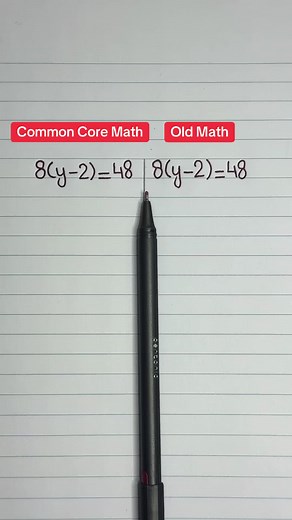 Common Core Math Old Math
8(y-2)=48 8(y-2)=48